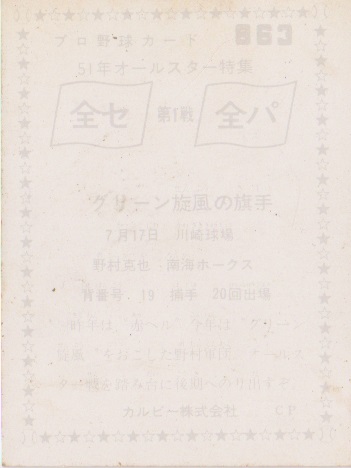 プロ野球カード 863
51年オールスター特集
全セ 第1戦 全パ
グリーン旋風の旗手
7月17日 川崎球場
野村克也 南海ホークス
背番号 19 捕手 20回出場
昨年は、赤ヘル、今年は“グリーン
旋風”をおこした野村軍団。オールス
ター戦を踏み台に後期への目出すぞ。
カルビー株式会社 CP